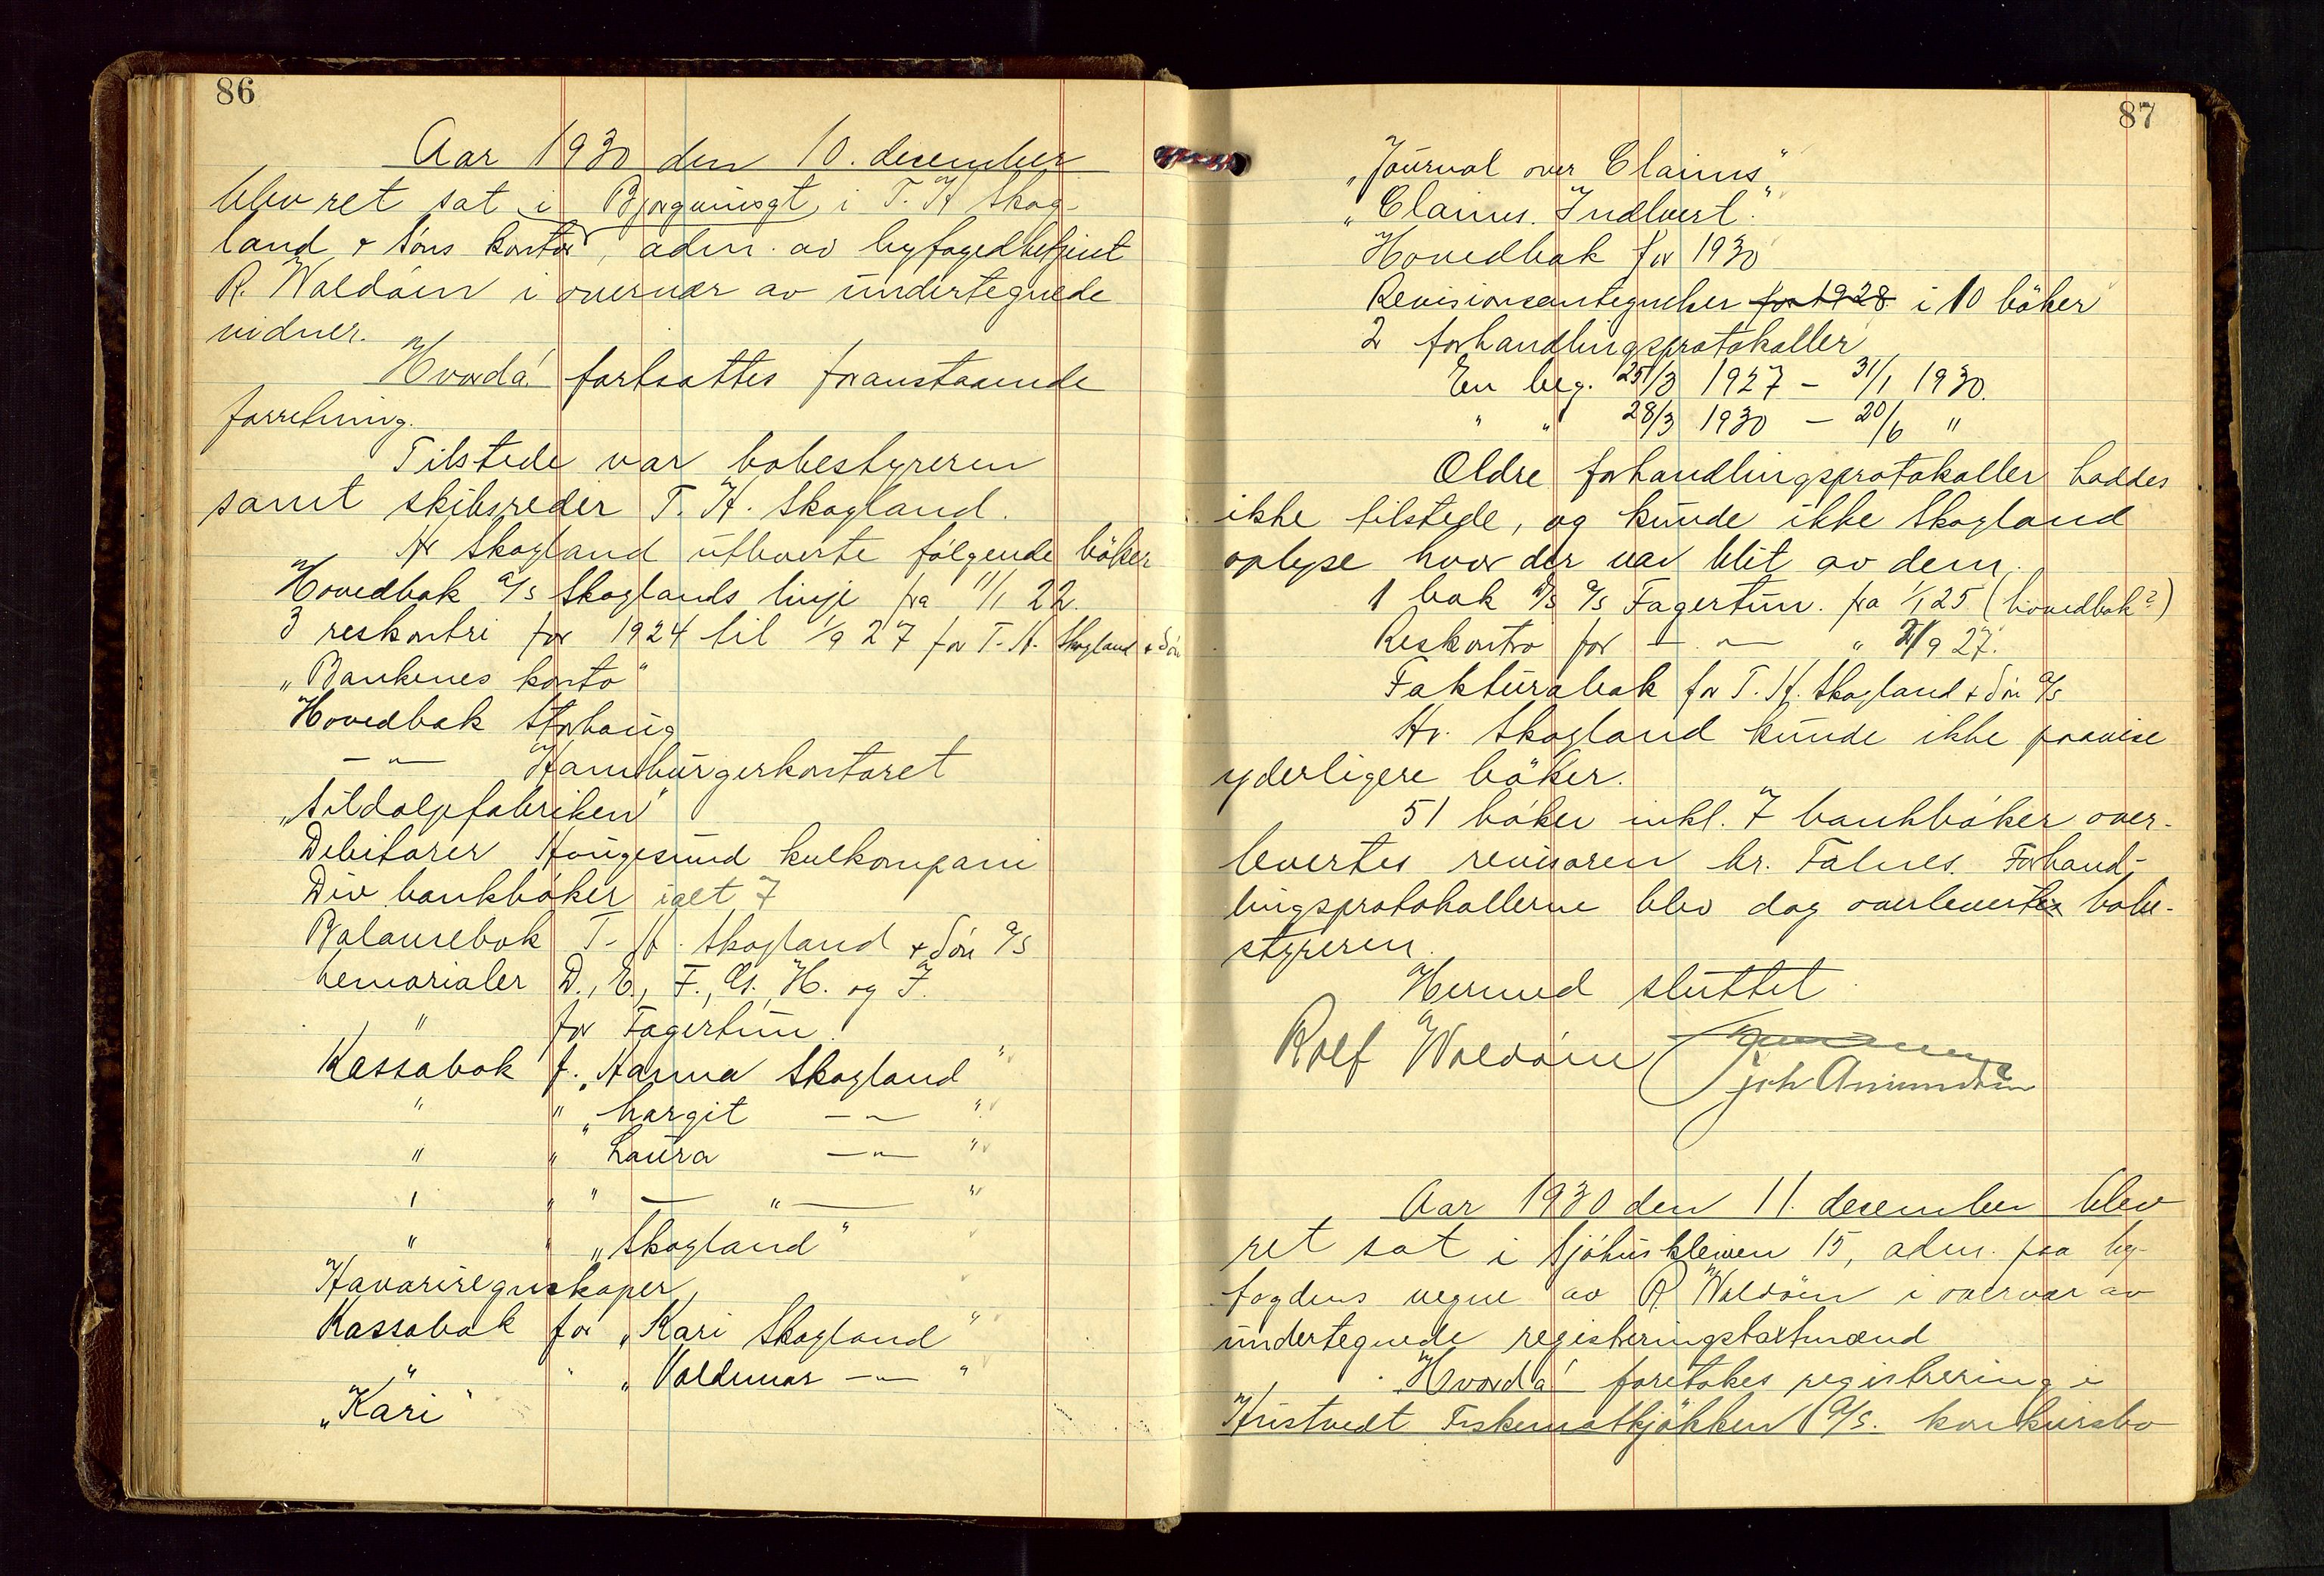 86
Aar 1930 den 10. desember
blev ret sat i Bjørgvinsgt, i T. H Skog-
land & Søns kontor, adm. av byfogedbetjent
R. Waldöen i overvær av undertegnede
vidner.
Hvorda! fortsattes foranstaaende
forretning.
Tilstede var bobestyreren
samt skibsreder T. H. Skogland.
Hr Skogland utleverte følgende bøker
Hovedbok a/s Skoglands linje fra 1/1 22.
3 reskontri for 1924 til 1/9 27 for T. H. Skogland & Søn
„Bankenes konto"
Hovedbok Storhaug
— " — Hamburgerkontoret
„Sildoljefabriken"
Debitorer Haugesund kulkompani
Div bankbøker ialt 7
Balansebok T. H. Skogland & Søn a/s
Memorialer D., E., F., G., H. og J.
" for Fagertun.
Kassabok f. „Hanna Skogland"
" " „Margit — " — "
" " Laura — " — "
" " " — " — "
" " „Skogland"
Havariregnskaper,
Kassabok for „Kari Skogland"
" " „Valdemar — " — "
„Kari"
87
„Journal over Claims"
„Claims. Indlevert."
Hovedbok for 1930
Revisionsantegnelser for 1928 i 10 bøker
2 forhandlingsprotokoller
En beg. 25/3 1927 – 31/1 1930.
" " 28/3 1930 – 20/6 "
Ældre forhandlingsprotokoller haddes
ikke tilstede, og kunde ikke Skogland
oplyse hvor der var blit av dem.
1 bok D/S a/s Fagertun. fra 1/1 25 (hovedbok?)
Reskontro for — " — " 1/9 27.
Fakturabok for T. H. Skogland & Søn a/s
Hr. Skogland kunde ikke paavise
yderligere bøker.
51 bøker inkl. 7 bankbøker over-
levertes revisoren hr. Falnes. Forhand-
lingsprotokollerne blev dog overlevert bobe-
styreren.
Hermed sluttet.
Rolf Waldöen
Joh Amundsen
Aar 1930 den 11. desember blev
ret sat i Sjøhuskleiven 15, adm. paa by-
fogdens vegne av R Waldöen i overvær av
undertegnede registreringstaxtmænd
Hvorda! foretokes registrering i
Hustvedt Fiskematkjøkken A/S. konkursbo